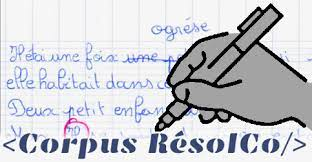 ogrése
Il etai une foix une
elle habitait dans
Deux petit enfan
<Corpus RésolCo/>